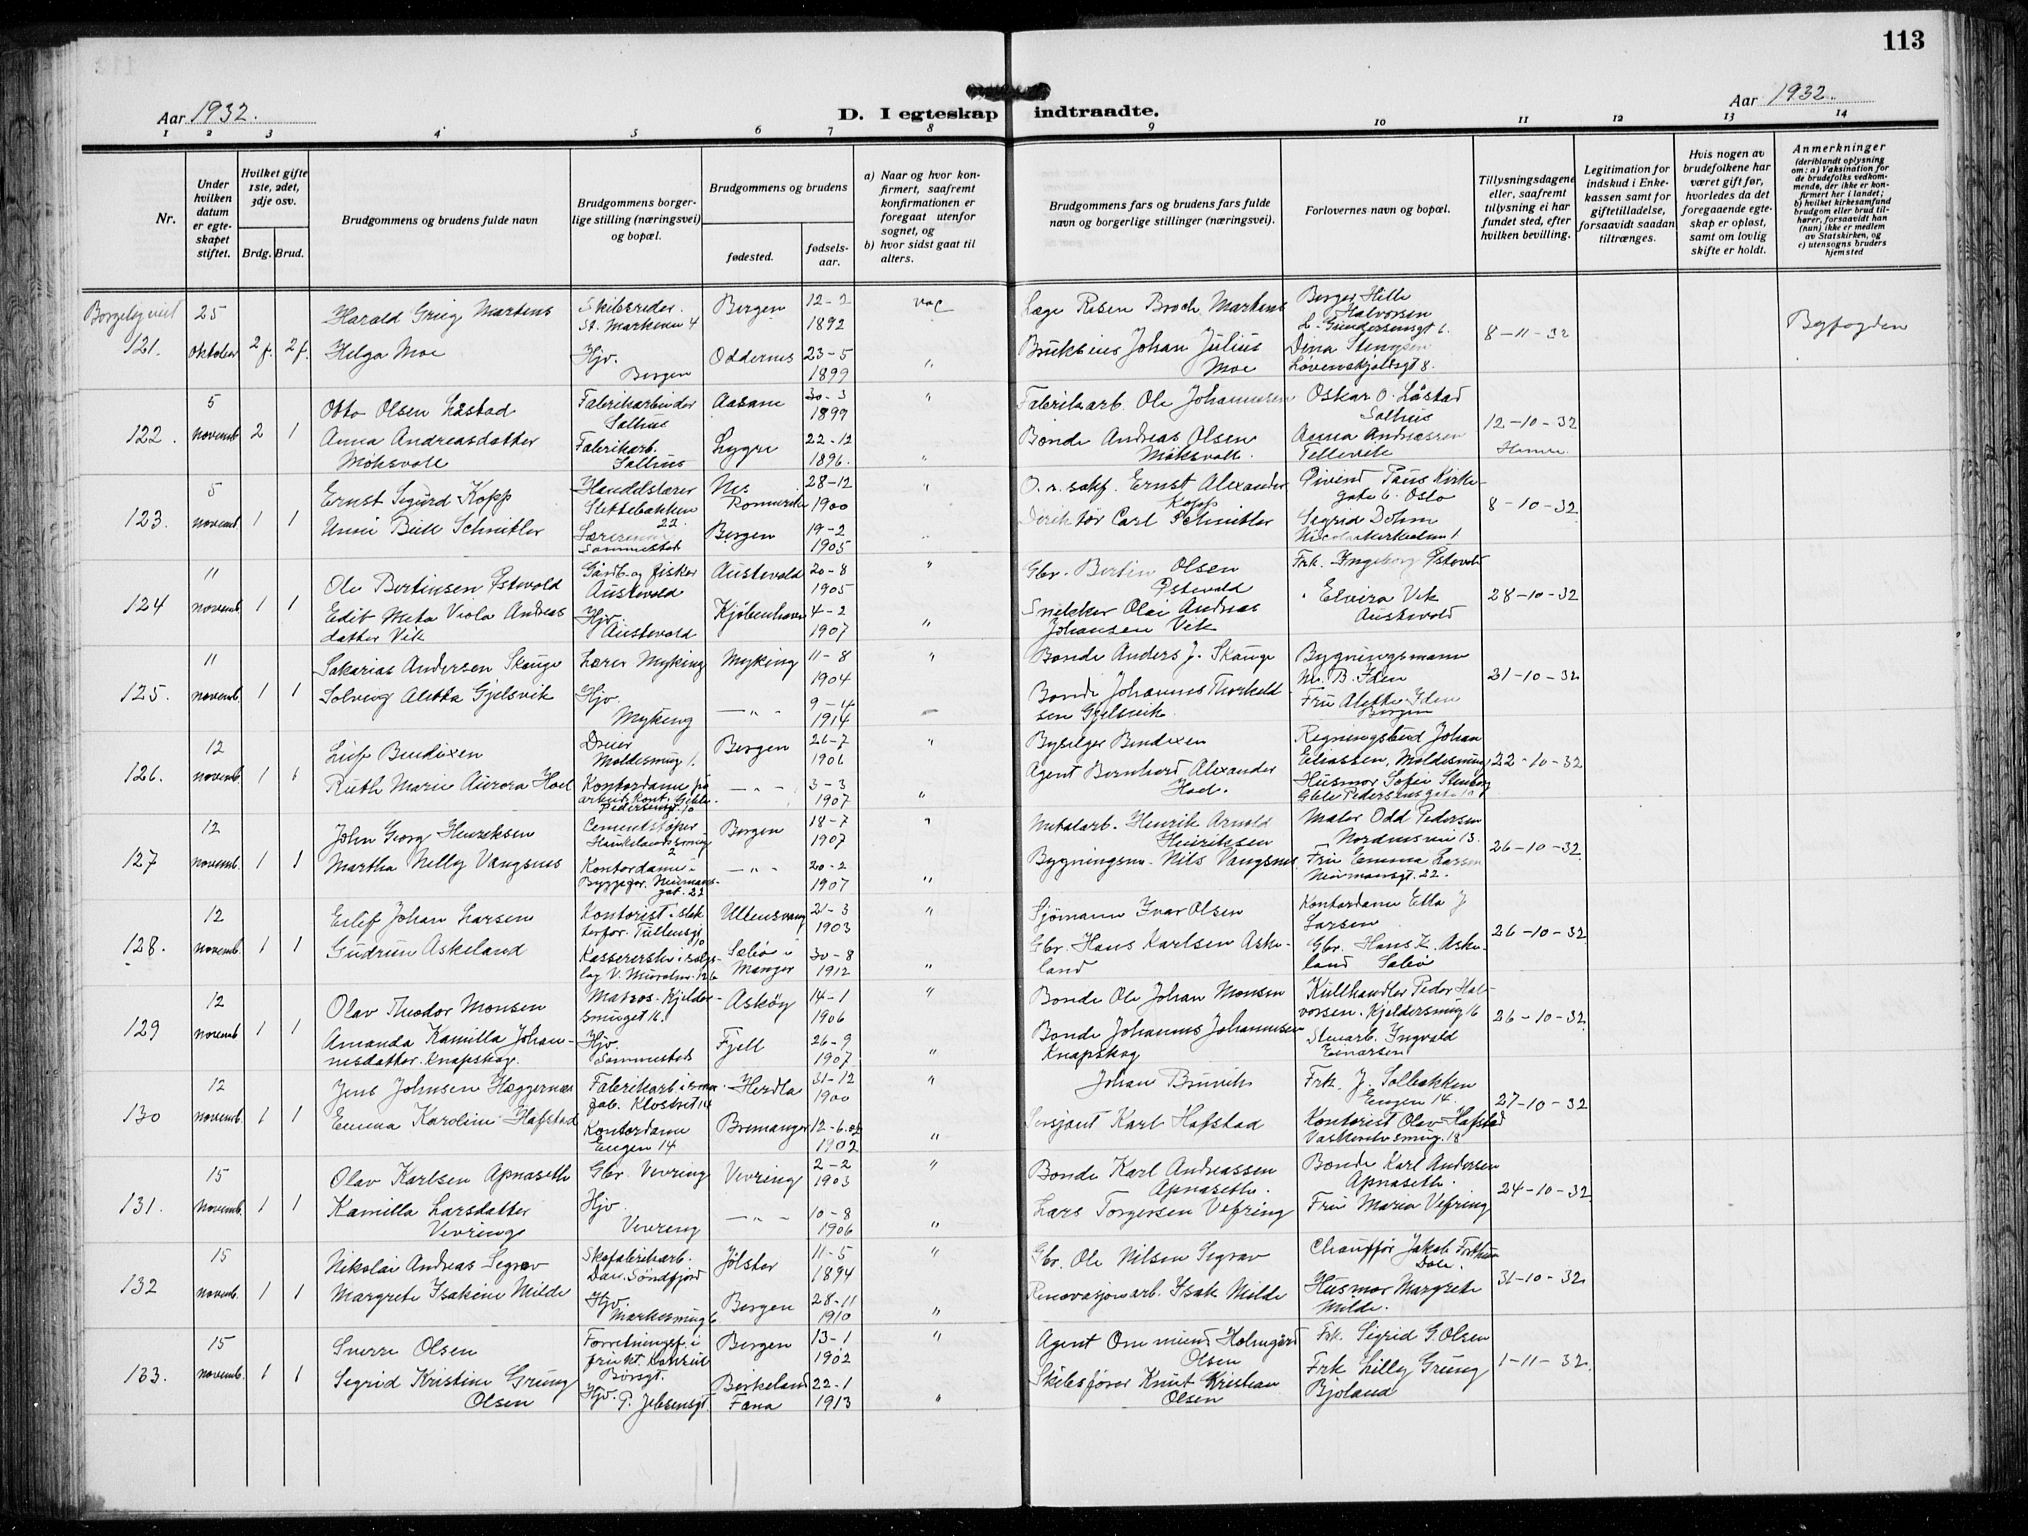 113
Aar 1932.
D. I egteskap indtraadte.
Aar 1932.
1 2 3 4 5 6 7 8 9 10 11 12 13 14
Nr.
Under hvilken datum er egteskapet stiftet.
Hvilket gifte 1ste, 2det, 3dje osv.
Brdg. Brud.
Brudgommens og brudens fulde navn
Brudgommens borgerlige stilling (næringsvei) og bopæl.
Brudgommens og brudens
fødested.
fødselsaar.
a) Naar og hvor konfirmert, saafremt konfirmationen er foregaat utenfor sognet, og
b) hvor sidst gaat til alters.
Brudgommens fars og brudens fars fulde navn og borgerlige stillinger (næringsvei).
Forlovernes navn og bopæl.
Tillysningsdagene eller, saafremt tillysning ei har fundet sted, efter hvilken bevilling.
Legitimation for indskud i Enkekassen samt for giftetilladelse, forsaavidt saadan tiltrænges.
Hvis nogen av brudefolkene har været gift før, hvorledes da det foregaaende egteskap er opløst, samt om lovlig skifte er holdt.
Anmerkninger
(deriblandt oplysning om: a) Vaksination for de brudefolks vedkommende, der ikke er konfirmert her i landet; b) hvilket kirkesamfund brudgom eller brud tilhører, forsaavidt han (hun) ikke er medlem av Statskirken, og c) utensogns bruders hjemsted
Borgerlig viet
121. 25 oktober 2 f. 2 f.
Harald Grieg Martens Skibsreder. St. Markevei 4 Bergen 12-2 1892 vac
Helga Moe Hjv. Bergen Oddernes 23-5 1899 "
Læge Resen Broch Martens
Johan Julius Moe
Birger Hille Halvorsen L. Gundersensgt 6.
Dina Løvenskjoldsgt 8.
8-11-32
Byfogden
122. 5 novemb. 2 1
Otto Olsen Låstad Fabrikarbeider Salhus Aasane 30-3 1899 "
Anna Andreasdatter Möksvoll Fabrikarb. Salhus Lygre 22-12 1896. "
Fabrikarb. Ole Johannesen
Bonde Andreas Olsen Möksvoll.
Oskar O. Låstad Salhus
Anna Andreassen Tellevik
12-10-32
Hamre
123. 5 novemb. 1 1
Ernst Sigurd Kopp Handelslærer Slettebakken 22. Nes Romerike 28-12 1900 "
Unni Schnitler Bergen 19-2 1905
O.r.sakf. Ernst Alexander Kopp
Carl Schnitler
Øivind Paus Kirkegate 6. Oslo
Sigrid Dohm Nicolaikirkealm 1
8-10-32
124 11 novemb. 1 1
Ole Bertinsen Østevold Gårdb. og fisker Austevold Austevold 20-8 1905 "
Edit Meta Viola Andreasdatter Vik Hjv. Austevold Kjøbenhavn 4-2 1907 "
Gbr. Bertin Olsen Østevold
Snekker Olai Andreas Johansen Vik
Frk. Ingeborg Østevold
" Elvira Vik Austevold
28-10-32
125. 11 novemb. 1 1
Sakarias Andersen Skauge Lærer Myking Myking 11-8 1904 "
Solveig Aletta Gjelsvik Hjv. Myking — " — 9-4 1914 "
Bonde Anders J. Skauge
Bonde Johannes Thorkeldsen Gjelsvik
Bygningsmann M. B. Iden
Fru Alette Iden Bergen
21-10-32
126. 12 novemb. 1 1
Leif Bendixen Dreier Moldesmug 1. Bergen 26-7 1906 "
Ruth Marie Aurora Hoel Kontordame på arbeids kont. Gjeble Pedersensgt. 10 — " — 3-3 1907 "
Byselger Bendixen
Agent Bernhard Alexander Hoel.
Regningsbud Johan Eliassen, Moldesmug
Husmor Sofie Gjeble Pedersensgate 10
22-10-32
127 12 novemb. 1 1
John Georg Henriksen Cementstøper Haukelandssmug 2 Bergen 18-7 1907 "
Martha Nelly Vangsnes Kontordame i Byggefor. Neumansgat. 22 — " — 20-2 1907 "
Metalarb. Henrik Arnold Henriksen
Bygningsm. Nils Vangsnes
Maler Odd Pedersen Nordnesvei 13.
Fru Emma Larsen Neumansgt. 22.
26-10-32
128. 12 novemb. 1 1
Eilif Johan Larsen Kontorist i slakterfor. Tullensgt 10 Ullensvang 21-3 1903 "
Gudrun Askeland Kassererske i salgslag V. Muralm. 126 Sæbø i Manger 30-8 1912 "
Sjømann Ivar Olsen
Gbr. Hans Karlsen Askeland
Kontordame Ella J Larsen
Gbr. Hans K. Askeland Sæbø
26-10-32
129 12 novemb. 1 1
Olav Theodor Monsen Matros. Kjeldersmuget 16. Askøy 14-1 1906 "
Amanda Kamilla Johannesdatter Knapskog. Hjv. Sammested Fjell 26-9 1907. "
Bonde Ole Johan Monsen
Bonde Johannes Johannesen Knapskog
Kullhandler Peder Halvorsen. Kjeldersmug 16
Stenarb. Ingvald Einarsen
26-10-32
130 12 novemb. 1 1
Jens Johnsen Hæggernæs Fabrikarb. i smørfab. Klostret 14 Herdla 31-12 1900 "
Emma Karoline Hafstad Kontordame Engen 14 Bremanger 12-6.02 1902 "
Johan Brunvik
Sersjant Karl Hafstad
Frk. J. Solbakken Engen 14.
Kontorist Olav Hafstad Vaskerelvsmug. 18
27-10-32
131. 15 novemb. 1 1
Olav Karlsen Apnaseth Gbr. Vevring Vevring 2-2 1903 "
Kamilla Larsdatter Vevring Hjv. Vevring — " — 10-8 1906 "
Bonde Karl Andreassen Apnaseth.
Lars Torgersen Vefring
Bonde Karl Andersen Apnaseth.
Fru Maria Vefring
24-10-32
132 15 novemb. 1 1
Nikolai Andreas Segrov Skofabrikarb. Dale. Söndfjord Jølster 11-5 1894 "
Margrete Isakine Milde Hjv. Markesmug 6 Bergen 28-11 1910 "
Gbr. Ole Nilsen Segrov
Renovasjonsarb. Isak Milde
Chauffør Jakob Dale.
Husmor Margrete Milde.
31-10-32
133. 15 novemb. 1 1
Sverre Olsen Forretningsf. i frukt. Børsgt. Bergen 13-1 1902 "
Sigrid Kristine Grung Olsen Hjv. P. Jebsensgt. Birkeland Fana 22-1 1913 "
Agent Ommund Holmgård Olsen
Skibsfører Knut Kristian Olsen
Frk. Sigrid G. Olsen
Frk Lilly Grung Bjoland
1-11-32